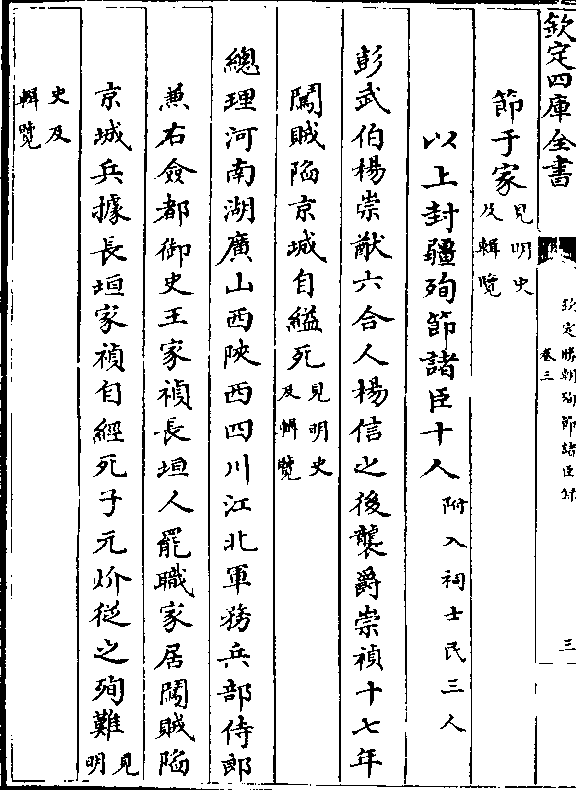 欽定四庫全書
欽定勝朝殉節諸臣錄
卷三
三
節于家見明史及輯覽
以上封疆殉節諸臣十人附入祠士民三人
彭武伯楊崇猷六合人楊信之後襲爵崇禎十七年
闖賊陷京城自縊死見明史及輯覽
總理河南湖廣山西陝西四川江北軍務兵部侍郎
兼右僉都御史王家禎長垣人罷職家居闖賊陷
京城兵據長垣家禎自經死子元炌從之殉難見明
史及輯覽